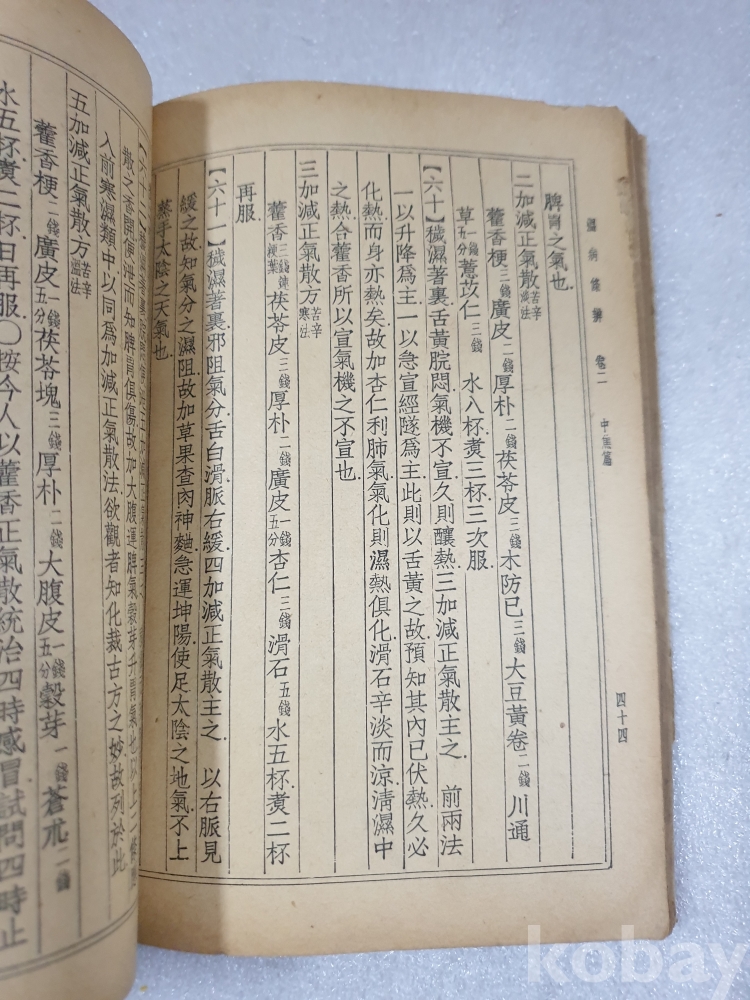 溫病條辨 卷二 中焦篇 四十四
脾胃之氣也
二加減正氣散苦辛淡法
藿香梗三錢廣皮二錢厚朴二錢茯苓皮三錢木防已三錢大豆黃卷二錢川通
草一錢五分薏苡仁三錢 水八杯煑三杯三次服
【六十】穢濕著裏舌黃脘悶氣機不宣久則釀熱三加減正氣散主之 前兩法
一以升降爲主一以急宣經隧爲主此則以舌黃之故預知其內已伏熱久必
化熱而身亦熱矣故加杏仁利肺氣氣化則濕熱俱化滑石辛淡而涼淸濕中
之熱合藿香所以宣氣機之不宣也
三加減正氣散方苦辛寒法
藿香三錢連梗葉茯苓皮三錢厚朴二錢廣皮一錢五分杏仁三錢滑石五錢水五杯煑二杯
再服
【六十一】穢濕著裏邪阻氣分舌白滑脈右緩四加減正氣散主之 以右脈見
緩之故知氣分之濕阻故加草果查肉神麯急運坤陽使足太陰之地氣不上
蒸手太陰之天氣也
散之香開便泄而知脾胃俱傷故加大腹運脾氣穀芽升胃氣也以上二條
入前寒濕類中以同爲加減正氣散法欲觀者知化裁古方之妙故列於此
五加減正氣散方苦辛溫法
藿香梗二錢廣皮一錢五分茯苓塊三錢厚朴二錢大腹皮一錢五分穀芽一錢蒼朮二錢
水五杯煑二杯日再服〇按今人以藿香正氣散統治四時感冒試問四時止
kobay